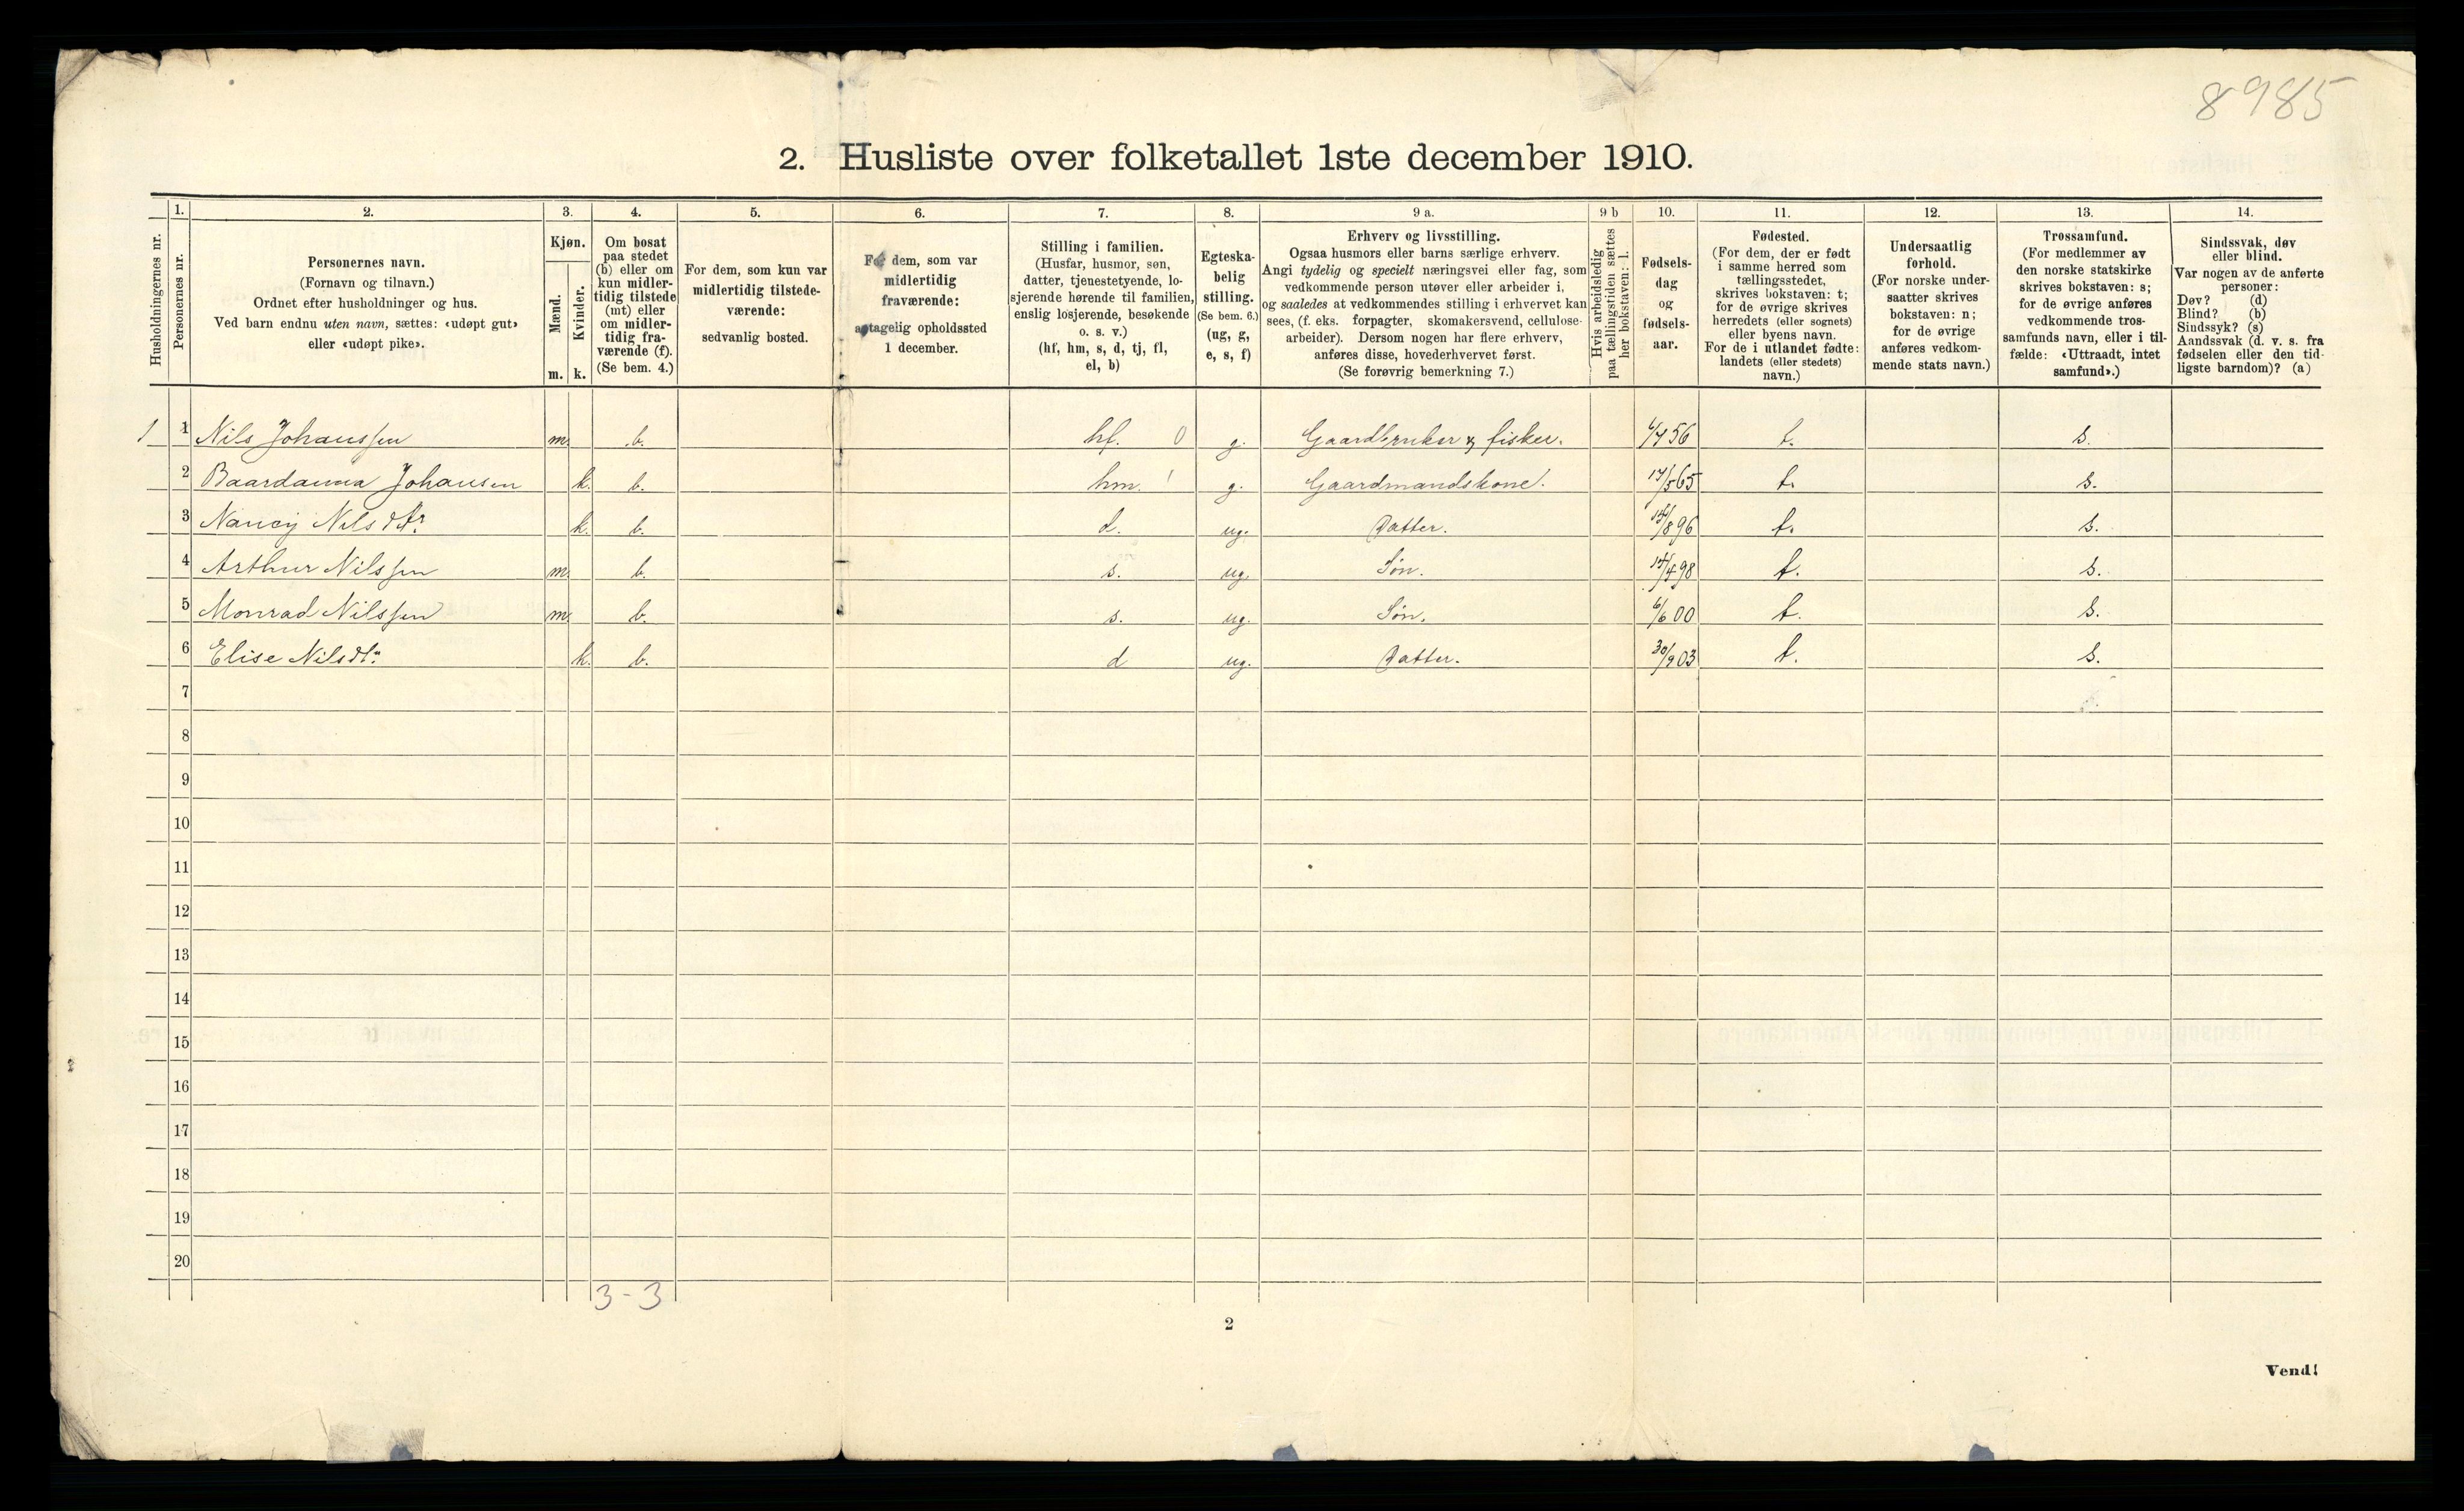 8985
2. Husliste over folketallet 1ste december 1910.
Husholdningernes nr.
1.
Personernes nr.
2.
Personernes navn.
(Fornavn og tilnavn.)
Ordnet efter husholdninger og hus.
Ved barn endnu uten navn, sættes: «udøpt gut»
eller «udøpt pike».
3.
Kjøn.
Mænd.
Kvinder.
m.
k.
4.
Om bosat
paa stedet
(b) eller om
kun midler-
tidig tilstede
(mt) eller
om midler-
tidig fra-
værende (f).
(Se bem. 4.)
5.
For dem, som kun var
midlertidig tilstede-
værende:
sedvanlig bosted.
6.
For dem, som var
midlertidig
fraværende:
antagelig opholdssted
1 december.
7.
Stilling i familien.
(Husfar, husmor, søn,
datter, tjenestetyende, lo-
sjerende hørende til familien,
enslig losjerende, besøkende
o. s. v.)
(hf, hm, s, d, tj, fl,
el, b)
8.
Egteska-
belig
stilling.
(Se bem. 6.)
(ug, g,
e, s, f)
9 a.
Erhverv og livsstilling.
Ogsaa husmors eller barns særlige erhverv.
Angi tydelig og specielt næringsvei eller fag, som
vedkommende person utøver eller arbeider i,
og saaledes at vedkommendes stilling i erhvervet kan
sees, (f. eks. forpagter, skomakersvend, cellulose-
arbeider). Dersom nogen har flere erhverv,
anføres disse, hovederhvervet først.
(Se forøvrig bemerkning 7.)
9 b
Hvis arbeidsledig
paa tællingstiden sættes
her bokstaven: l.
10.
Fødsels-
dag
og
fødsels-
aar.
11.
Fødested.
(For dem, der er født
i samme herred som
tællingsstedet,
skrives bokstaven: t;
for de øvrige skrives
herredets (eller sognets)
eller byens navn.
For de i utlandet fødte:
landets (eller stedets)
navn.)
12.
Undersaatlig
forhold.
(For norske under-
saatter skrives
bokstaven: n;
for de øvrige
anføres vedkom-
mende stats navn.)
13.
Trossamfund.
(For medlemmer av
den norske statskirke
skrives bokstaven: s;
for de øvrige anføres
vedkommende tros-
samfunds navn, eller i til-
fælde: «Uttraadt, intet
samfund».)
14.
Sindssvak, døv
eller blind.
Var nogen av de anførte
personer:
Døv? (d)
Blind? (b)
Sindssyk? (s)
Aandssvak (d. v. s. fra
fødselen eller den tid-
ligste barndom)? (a)
1 1 Nils Johanssen m. b. hf. 0 g. Gaardbruker & fisker. 56 t. s.
2 Baardanna Johansen k. b. hm. 1 g. Gaardmandskone. 17/5 65 t. s.
3 Nancy Nilsdtr k. b. d. ug. Datter. /8 96 t. s.
4 Arthur Nilssen m. b. s. ug. Søn. 98 t. s.
5 Monrad Nilssen m. b. s. ug. Søn. 6/6 00 t. s.
6 Elise Nilsdtr k. b. d ug. Datter. 30/9 03 t. s.
7
8
9
10
11
12
13
14
15
16
17
18
19
20
3 - 3
2
Vend!